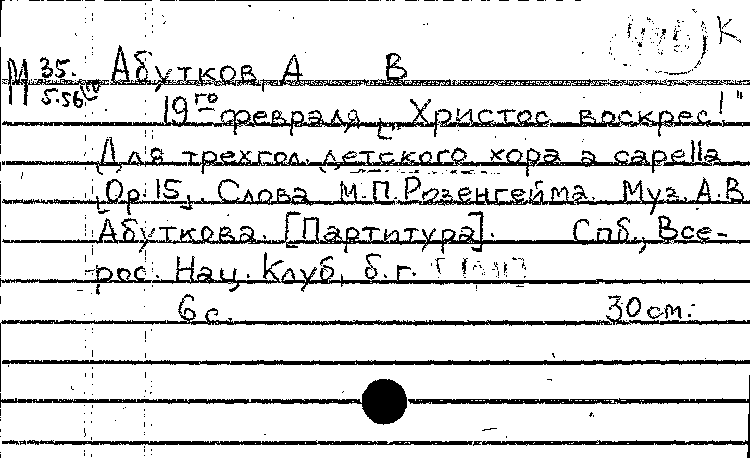 К
М 35. Абутков, А В
5.56
19го февраля „Христос воскрес!"
Для трехгол. детского хора a capella
[Op. 15]. Слова М.П.Розенгейма. Муз. А.В
Абуткова. [Партитура]. Спб., Все-
рос. Нац. Клуб, б.г.
6 с. 30 см.